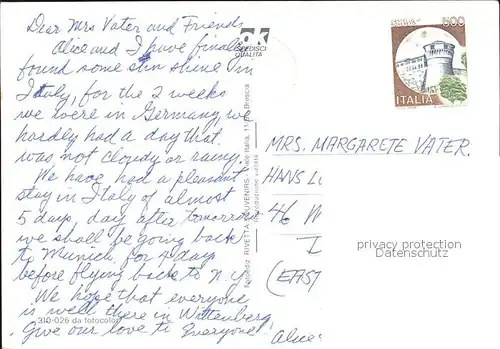 Dear Mrs Vater and Friends,
Alice and I have finally
found some sun shine in
Italy, for the 2 weeks
we were in Germany we
hardly had a day that
was not cloudy or rainy.
We have had a pleasant
stay in Italy of almost
5 days, day after tomorrow
we shall be going back
to Munich for a day
before flying back to N.Y.
We hope that everyone
is well there in Wittenberg
Give our love to everyone!
Alice
310-026 da fotocolor
SPEDISCI
QUALITA
Fotoediz. RIVETTA SOUVENIRS
Riproduzione vietata
Brescia
500
ITALIA
MRS. MARGARETE VATER.
HANS
46
(EAST
privacy protection
Datenschutz